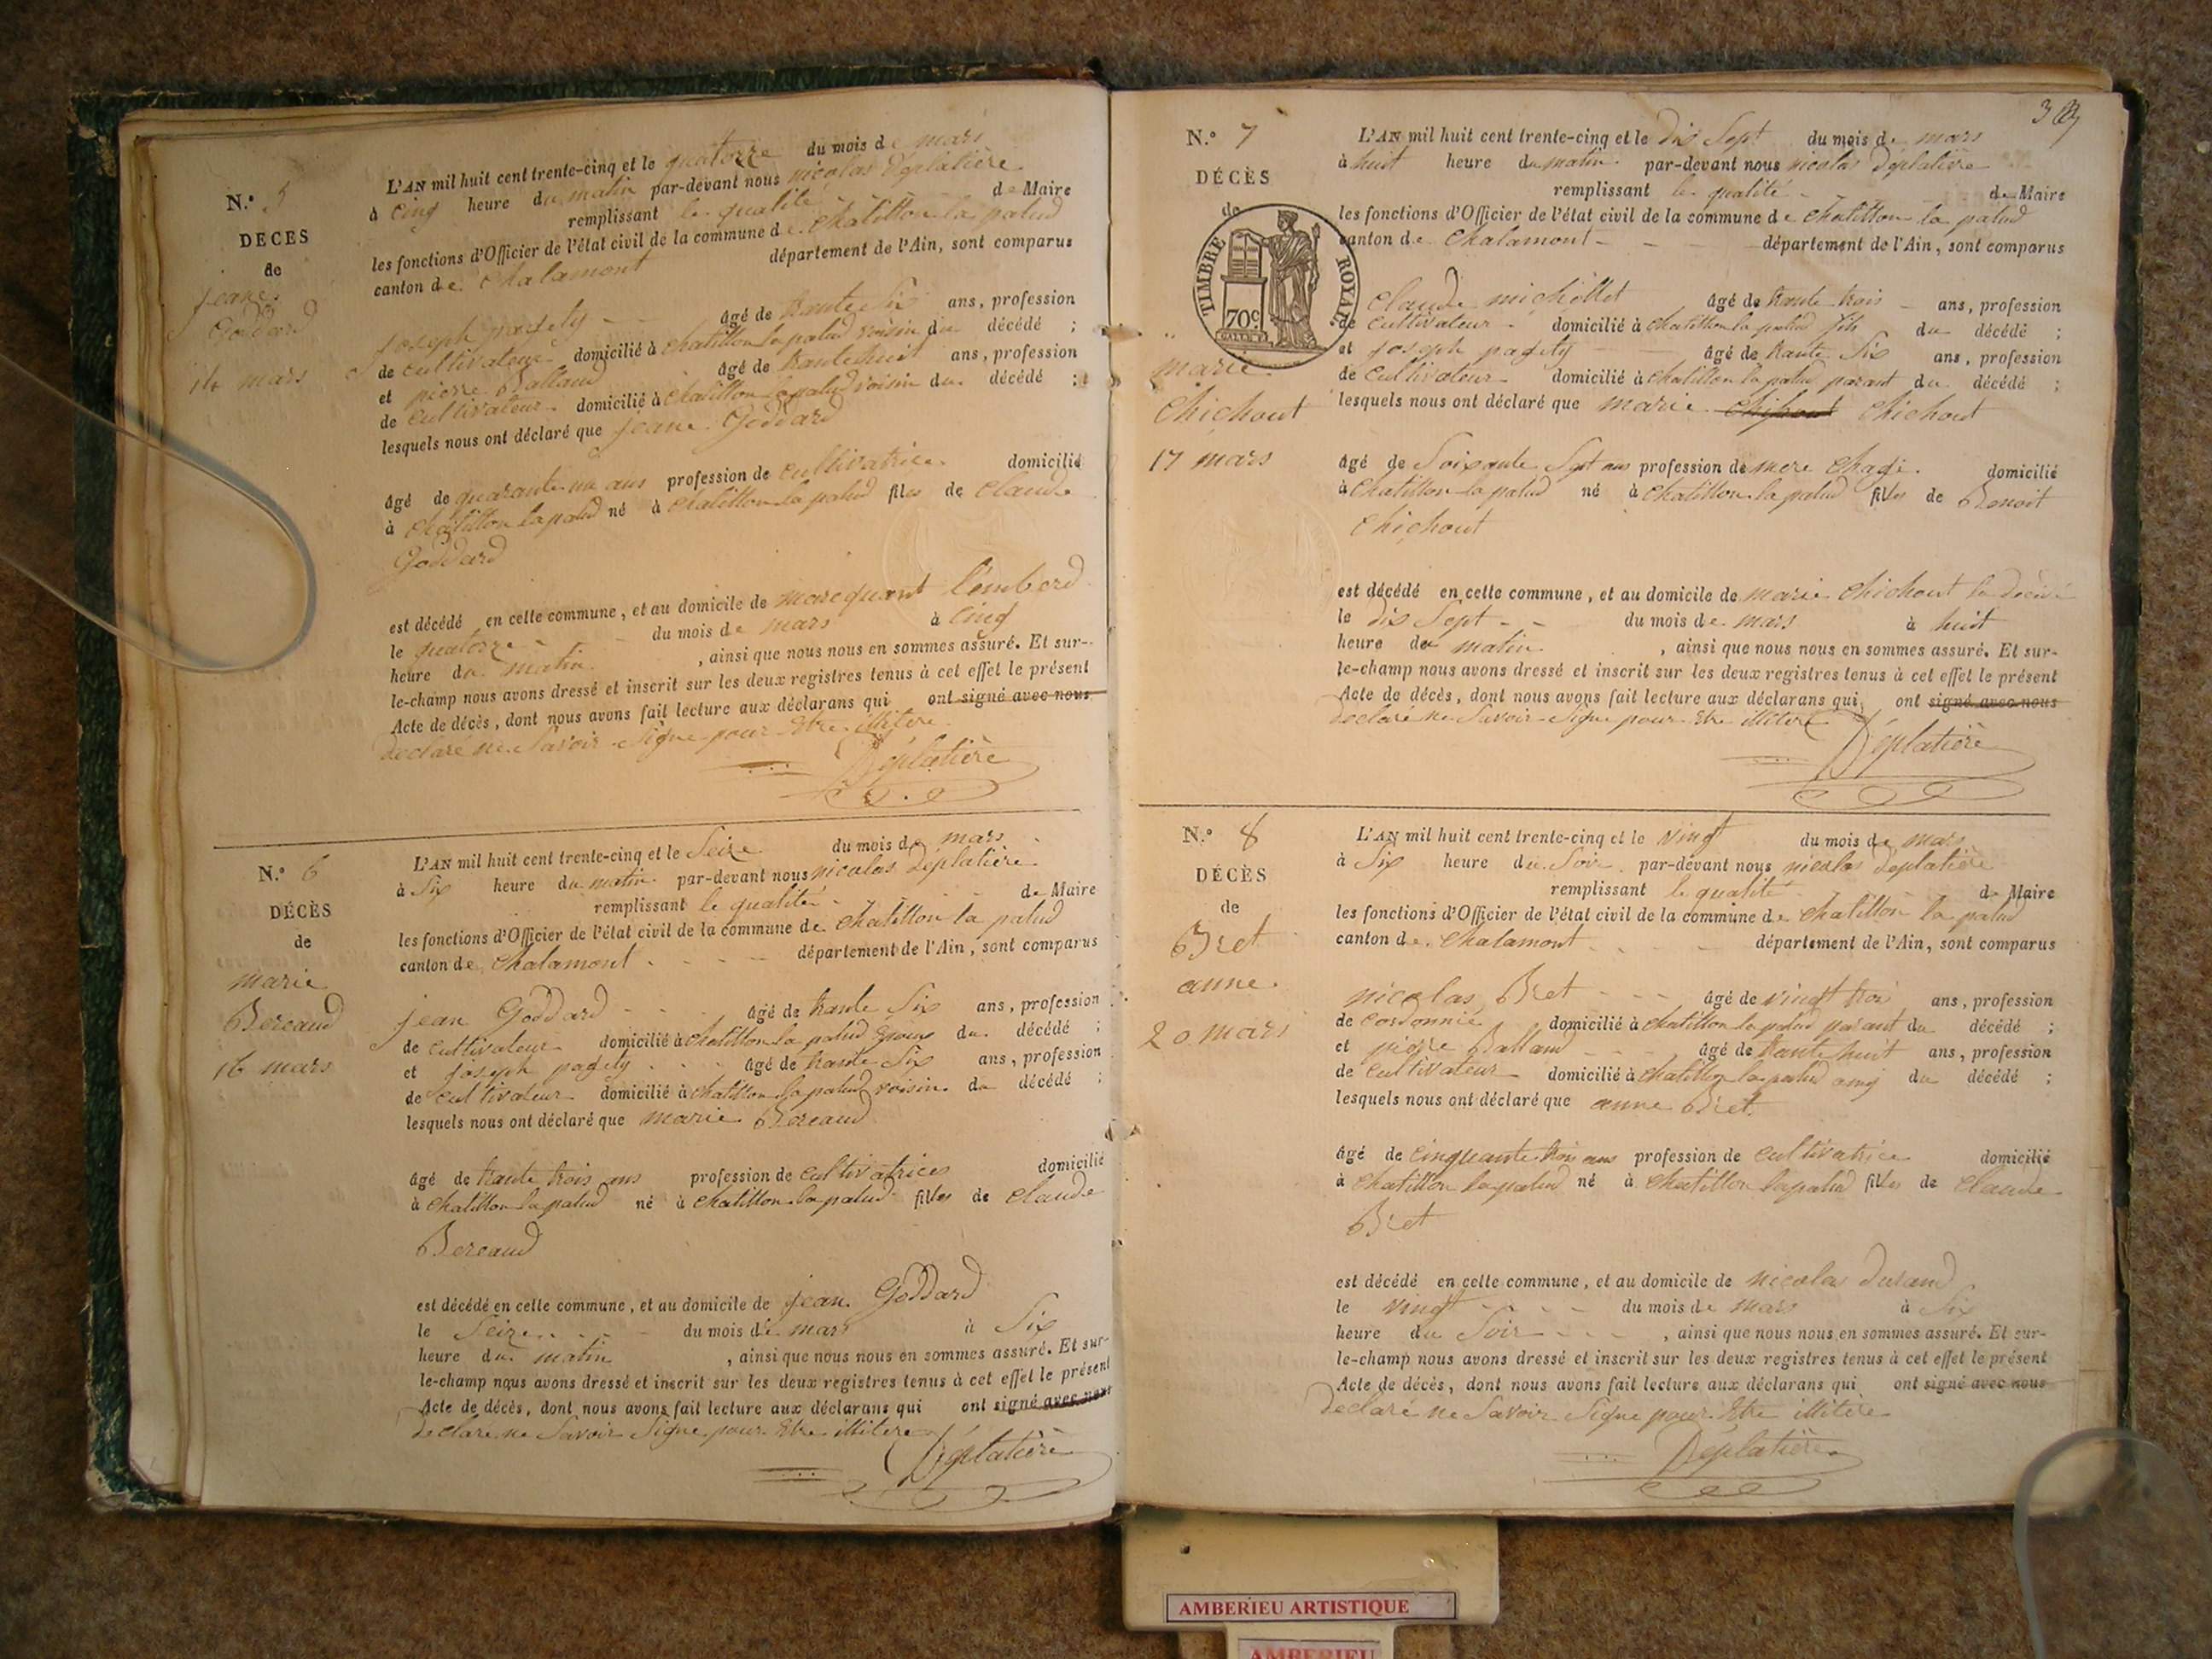 N.° 5
DECES
de
jeane
Goddard
14 mars
L'AN mil huit cent trente-cinq et le quatorze du mois de mars
à cinq heure du matin par-devant nous nicolas Déplatière
remplissant le qualité de Maire
les fonctions d'Officier de l'état civil de la commune de chatillon la palud
canton de chalamont département de l'Ain, sont comparus
joseph pagely âgé de trante six ans, profession
de cultivateur domicilié à chatillon la palud voisin du décédé ;
et pierre Balland âgé de trante huit ans, profession
de cultivateur domicilié à chatillon la palud voisin du décédé ;
lesquels nous ont déclaré que jeane Goddard
âgé de quarante un ans profession de cultivatrice domicilié
à chatillon la palud né à chatillon la palud files de claude
Goddard
est décédé en cette commune, et au domicile de marcquant l'emberd
le quatorze du mois de mars à cinq
heure du matin , ainsi que nous nous en sommes assuré. Et sur-
le-champ nous avons dressé et inscrit sur les deux registres tenus à cet effet le présent
Acte de décès, dont nous avons fait lecture aux déclarans qui ont signé avec nous
declaré ne Savoir Signe pour Etre illitere
Déplatière
N.° 6
DÉCÈS
de
marie
Bereaud
16 mars
L'AN mil huit cent trente-cinq et le Seize du mois de mars
à Six heure du matin par-devant nous nicolas Déplatière
remplissant le qualité de Maire
les fonctions d'Officier de l'état civil de la commune de chatillon la palud
canton de chalamont département de l'Ain, sont comparus
jean Goddard âgé de trante Six ans, profession
de cultivateur domicilié à chatillon la palud Epoux du décédé ;
et joseph pagely âgé de trante Six ans, profession
de cultivateur domicilié à chatillon la palud voisin du décédé ;
lesquels nous ont déclaré que marie Bereaud
âgé de trante trois ans profession de cultivatrices domicilié
à chatillon la palud né à chatillon la palud filles de claude
Bereaud
est décédé en cette commune, et au domicile de jean Goddard
le Seize du mois de mars à Six
heure du matin , ainsi que nous nous en sommes assuré. Et sur-
le-champ nous avons dressé et inscrit sur les deux registres tenus à cet effet le présent
Acte de décès, dont nous avons fait lecture aux déclarans qui ont signé avec nous
declaré ne Savoir Signe pour Etre illitere
Déplatière
N.° 7
DÉCÈS
de
TIMBRE ROYAL
70c
marie
chichout
17 mars
L'AN mil huit cent trente-cinq et le dix Sept du mois de mars
à huit heure du matin par-devant nous nicolas Déplatière
remplissant le qualité de Maire
les fonctions d'Officier de l'état civil de la commune de chatillon la palud
canton de chalamont département de l'Ain, sont comparus
claude michollet âgé de trante trois ans, profession
de cultivateur domicilié à chatillon la palud fils du décédé ;
et joseph pagely âgé de trante Six ans, profession
de cultivateur domicilié à chatillon la palud parant du décédé ;
lesquels nous ont déclaré que marie chichout
âgé de Soixante Sept ans profession de mere domicilié
à chatillon la palud né à chatillon la palud filles de Benoit
chichout
est décédé en cette commune, et au domicile de marie chichout la
le dix Sept du mois de mars à huit
heure du matin , ainsi que nous nous en sommes assuré. Et sur-
le-champ nous avons dressé et inscrit sur les deux registres tenus à cet effet le présent
Acte de décès, dont nous avons fait lecture aux déclarans qui ont signé avec nous
declaré ne Savoir Signe pour Etre illitere
Déplatière
N.° 8
DÉCÈS
de
Bret
anne
20 mars
L'AN mil huit cent trente-cinq et le vingt du mois de mars
à Six heure du Soir par-devant nous nicolas Déplatière
remplissant le qualité de Maire
les fonctions d'Officier de l'état civil de la commune de chatillon la palud
canton de chalamont département de l'Ain, sont comparus
nicolas Bret âgé de vingt trois ans, profession
de cordonnié domicilié à chatillon la palud parant du décédé ;
et pierre Balland âgé de trante huit ans, profession
de cultivateur domicilié à chatillon la palud amy du décédé ;
lesquels nous ont déclaré que anne Bret
âgé de cinquante trois ans profession de cultivatrice domicilié
à chatillon la palud né à chatillon la palud filles de claude
Bret
est décédé en cette commune, et au domicile de nicolas durand
le vingt du mois de mars à Six
heure du Soir , ainsi que nous nous en sommes assuré. Et sur-
le-champ nous avons dressé et inscrit sur les deux registres tenus à cet effet le présent
Acte de décès, dont nous avons fait lecture aux déclarans qui ont signé avec nous
Declaré ne Savoir Signe pour Etre illitere
Déplatière
AMBERIEU ARTISTIQUE
AMBERIEU